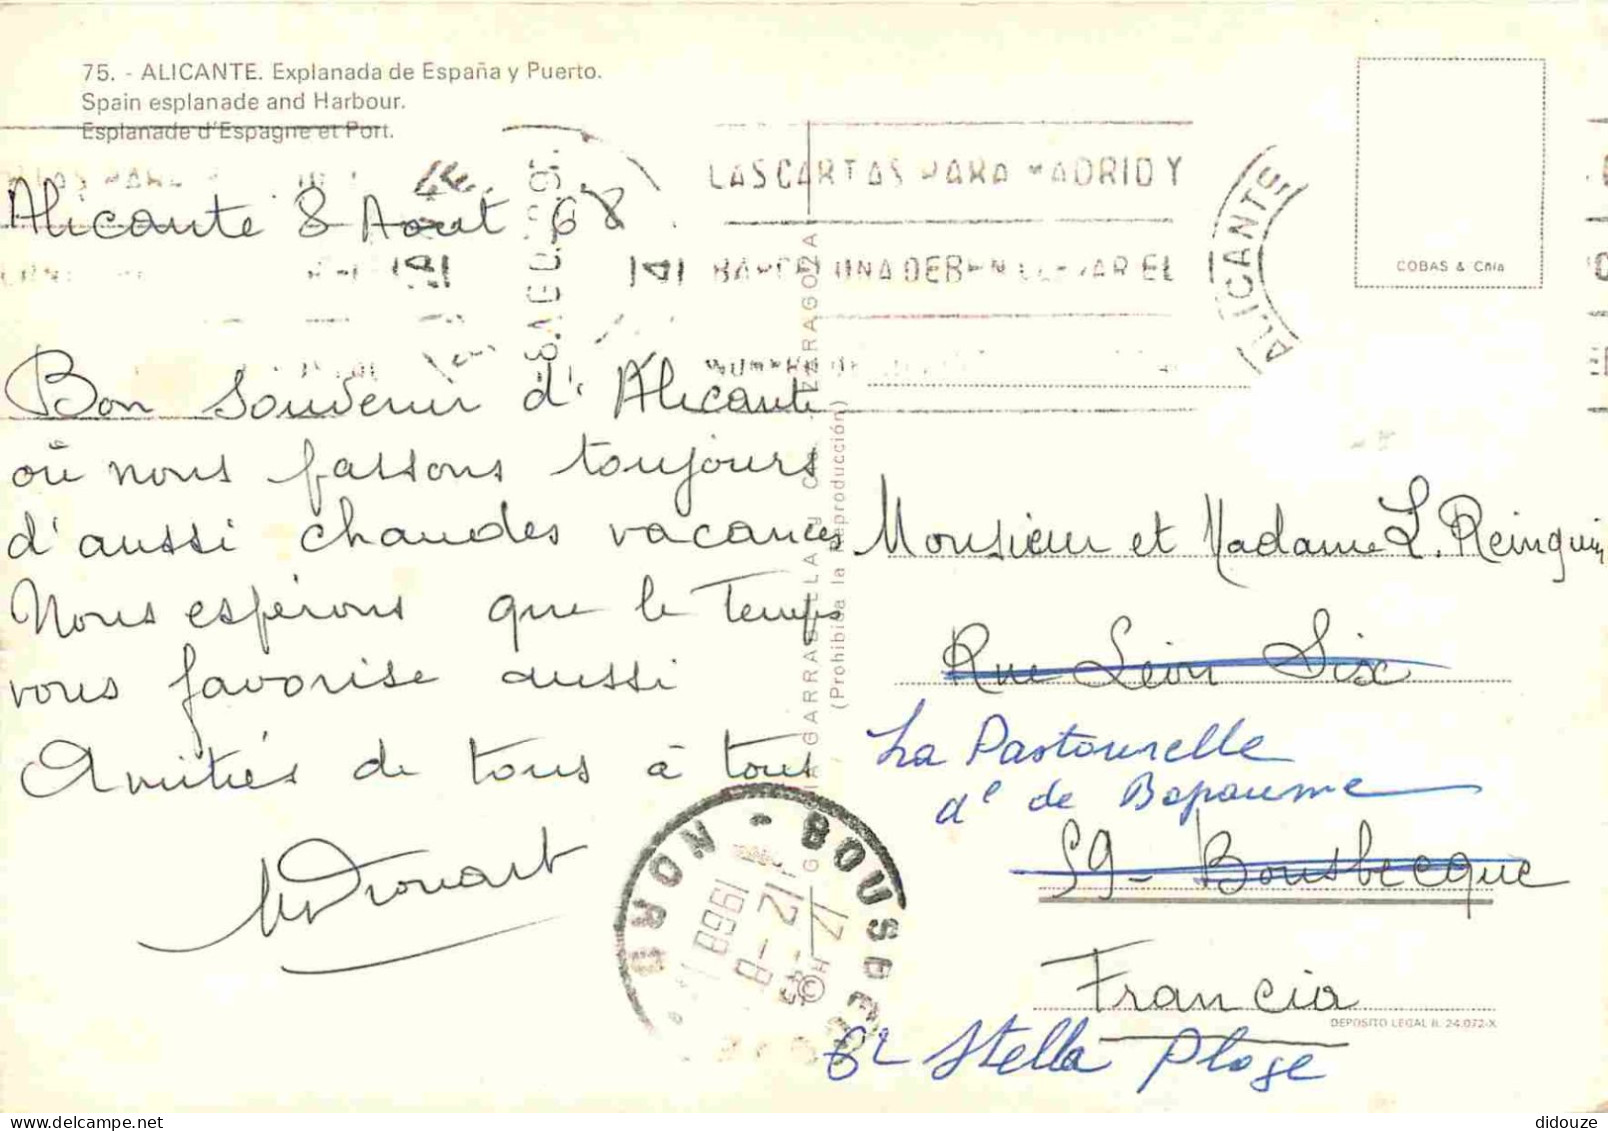 75. - ALICANTE. Explanada de España y Puerto.
Spain esplanade and Harbour.
Esplanade d'Espagne et Port.
Alicante 8 Aout 68
Bon souvenir d'Alicante
où nous passons toujours
d'aussi chaudes vacances
Nous espérons que le temps
vous favorise aussi
Amitiés de tous à tous
LAS CARTAS PARA MADRID Y
BARCELONA DEBEN LLEVAR EL
ALICANTE
COBAS & Cñía
ZARAGOZA
(Prohibida la reproducción)
Monsieur et Madame L. Reinquin
Rue Léon Six
La Pastourelle
de Bapaume
59 - Bousbecque
Francia
DEPOSITO LEGAL B. 24.072-X
62 Stella Plage
BOUSBECQUE
NORD
17 H
12 - 8
1968
didouze